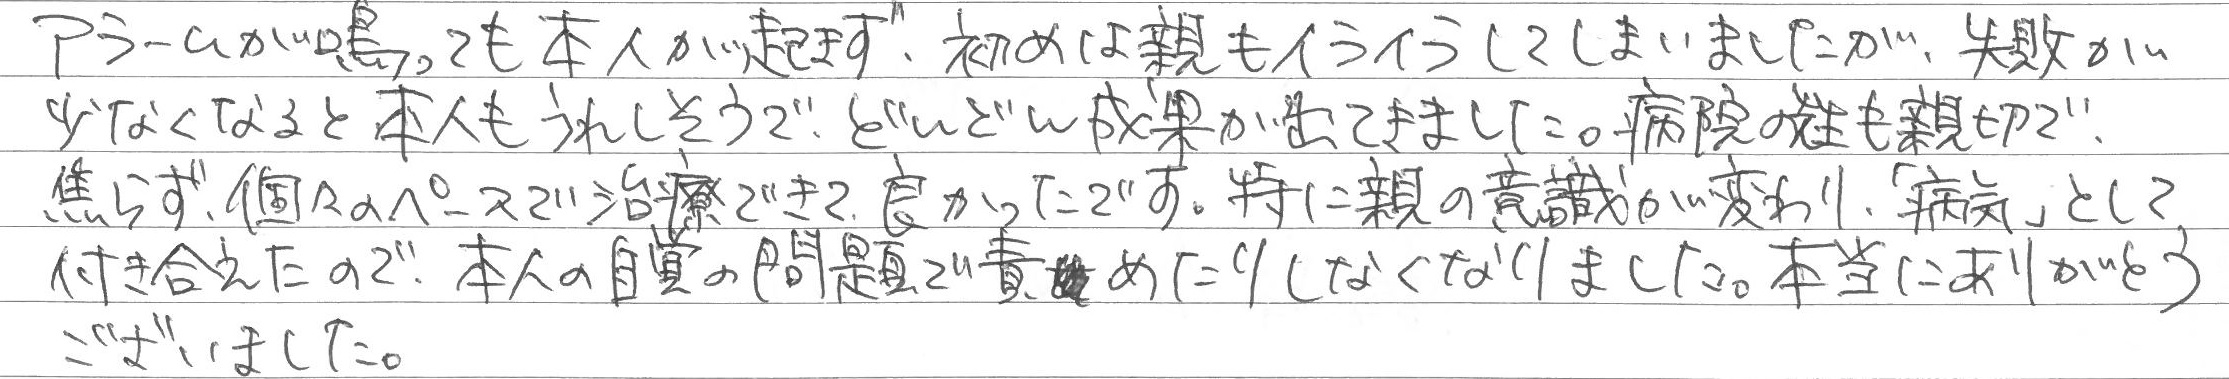 アラームが鳴っても本人が起きず、初めは親もイライラしてしまいましたが、失敗が
少なくなると本人もうれしそうで、どんどん成果が出てきました。病院の先生も親切で、
焦らず、個々のペースで治療できて、良かったです。特に親の意識が変わり、「病気」として
付き合えたので、本人の自覚の問題で責めたりしなくなりました。本当にありがとう
ございました。